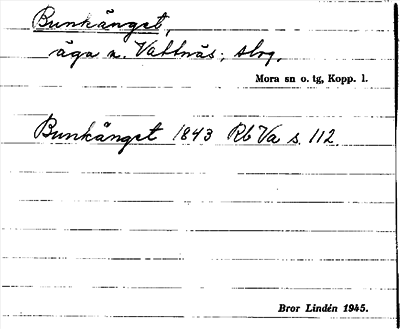 Bunkängst,
äga n. Vattnäs, skog.
Mora sn o. tg, Kopp. l.
Bunkängst 1843 Rb Va s. 112
Bror Lindén 1945.